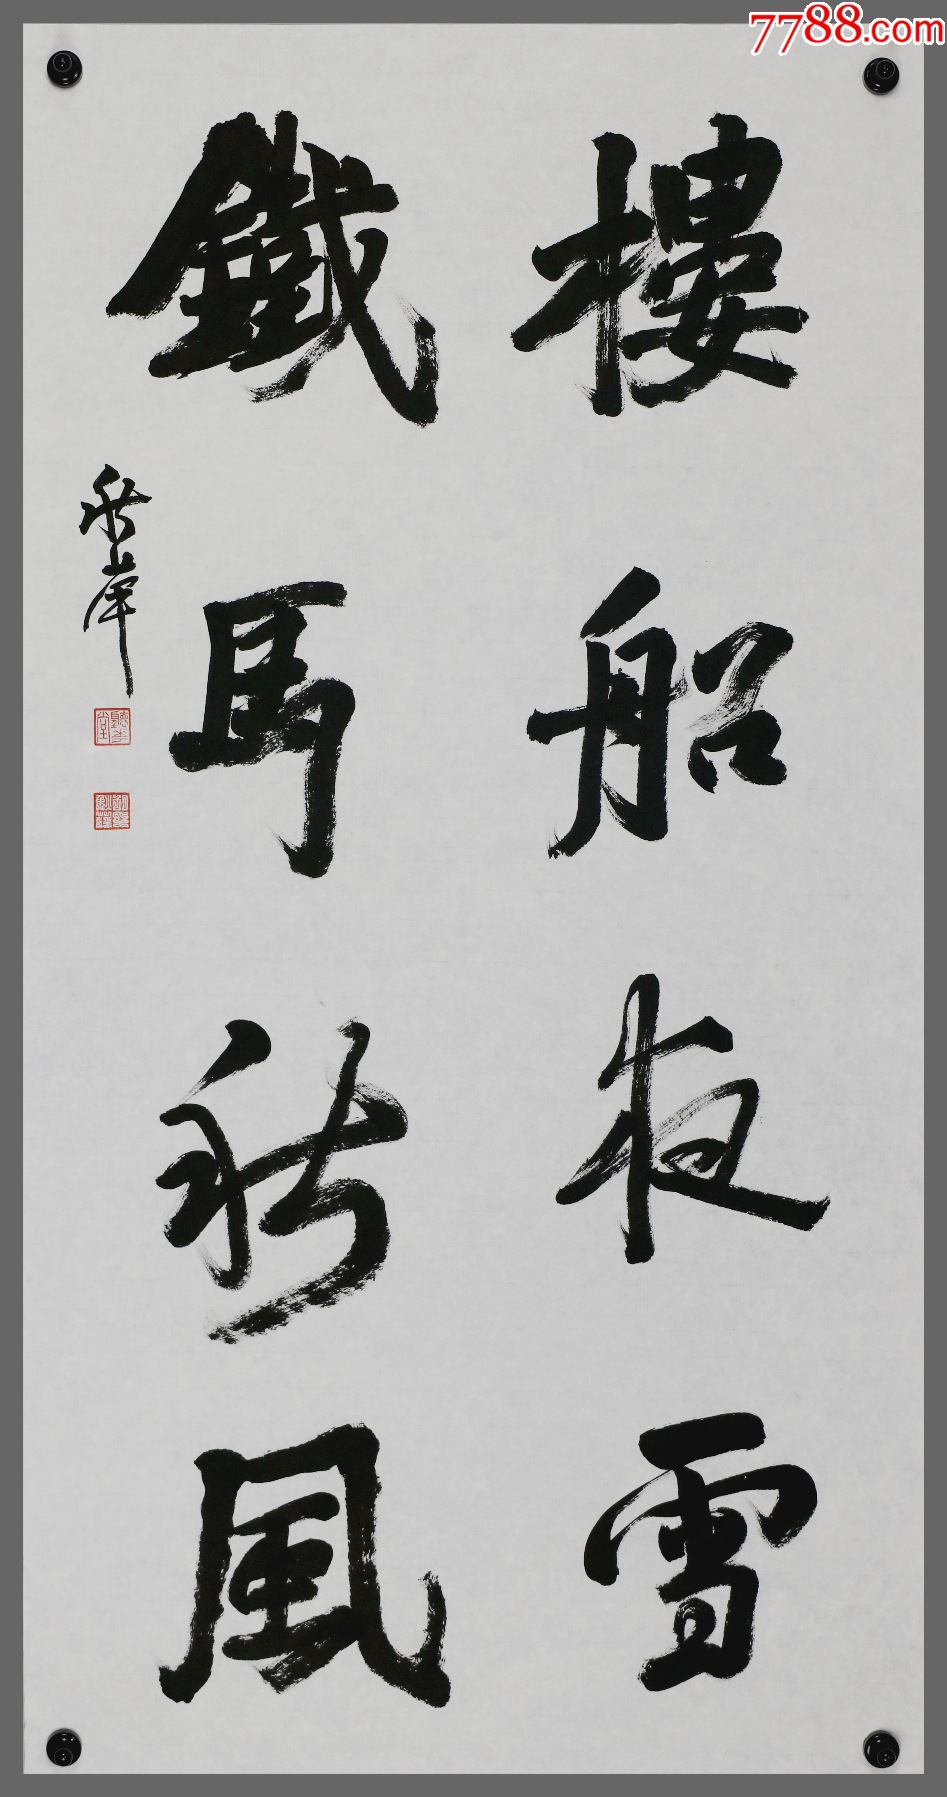 7788.com
樓船夜雪
鐵馬秋風